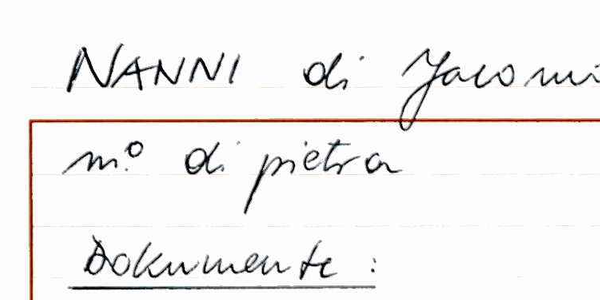 NANNI di Jacomo
m.º di pietra
Dokumente :